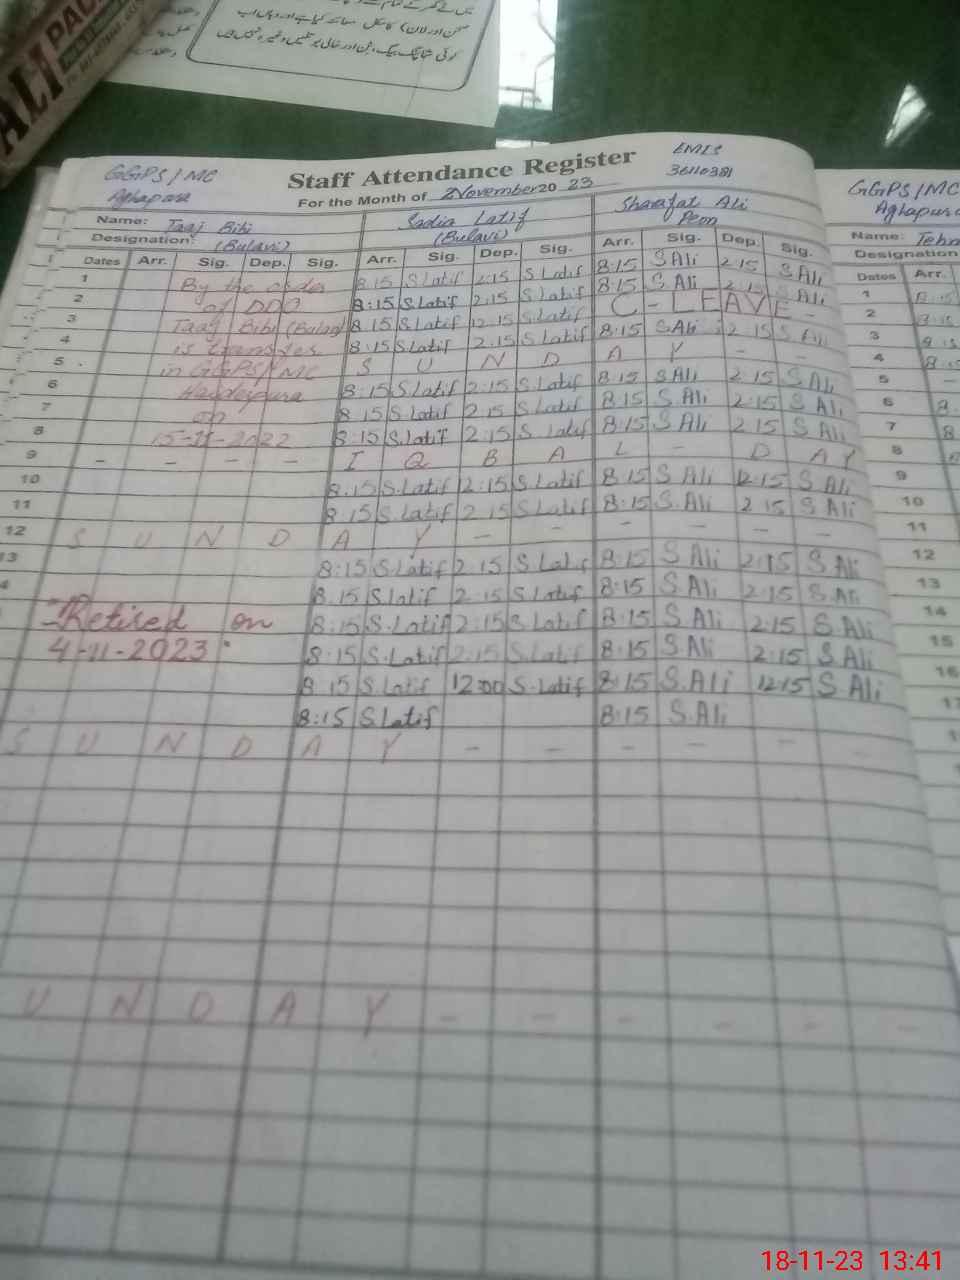 ALI
صحن اور لان) کا مکمل
GGPS/MC
Aghapura
Staff Attendance Register
EMIS
36110381
For the Month of November 20 23
Name: Taaj Bibi
Sadia Latif
Sharafat Ali
Designation: (Bulavi)
(Bulavi)
Peon
Dates Arr. Sig. Dep. Sig. Arr. Sig. Dep. Sig. Arr. Sig. Dep. Sig.
1 By the order 8:15 S Latif 2:15 S Latif 8:15 S Ali 2:15 S Ali
2 of DDO 8:15 S.Latif 2:15 S.Latif 8:15 S.Ali 2:15 S Ali
3 Taaj Bibi (Bulavi) 8:15 S.Latif 12:15 S.Latif C-LEAVE-
4 is transfer 8:15 S.Latif 2:15 S.Latif 8:15 S.Ali 12:15 S Ali
5 in GGPS/MC S U N D A Y - -
6 8:15 S.Latif 2:15 S.Latif 8:15 S Ali 2:15 S Ali
7 on 8:15 S.Latif 2:15 S.Latif 8:15 S.Ali 2:15 S Ali
8 15-11-2022 8:15 S.Latif 2:15 S Latif 8:15 S.Ali 2:15 S Ali
9 - - - - I Q B A L - D A Y
10 8:15 S.Latif 2:15 S.Latif 8:15 S Ali 12:15 S Ali
11 8:15 S.Latif 2:15 S.Latif 8:15 S.Ali 2:15 S Ali
12 S U N D A Y - - - - - -
13 8:15 S Latif 2:15 S Latif 8:15 S Ali 2:15 S Ali
4 8:15 S Latif 2:15 S.Latif 8:15 S.Ali 2:15 S.Ali
Retired on 8:15 S.Latif 2:15 S.Latif 8:15 S.Ali 2:15 S Ali
4-11-2023 8:15 S.Latif 2:15 S.Latif 8:15 S.Ali 2:15 S.Ali
8:15 S Latif 12:00 S.Latif 8:15 S.Ali 12:15 S Ali
8:15 S Latif 8:15 S.Ali
S U N D A Y - - - - - -
U N D A Y - - - - - -
GGPS/MC
Aghapura
Name: Tehm
Designation
Dates Arr.
1
2
3
4
5
6 8
7 8
8
9
10
11
12
13
14
15
16
17
18-11-23 13:41